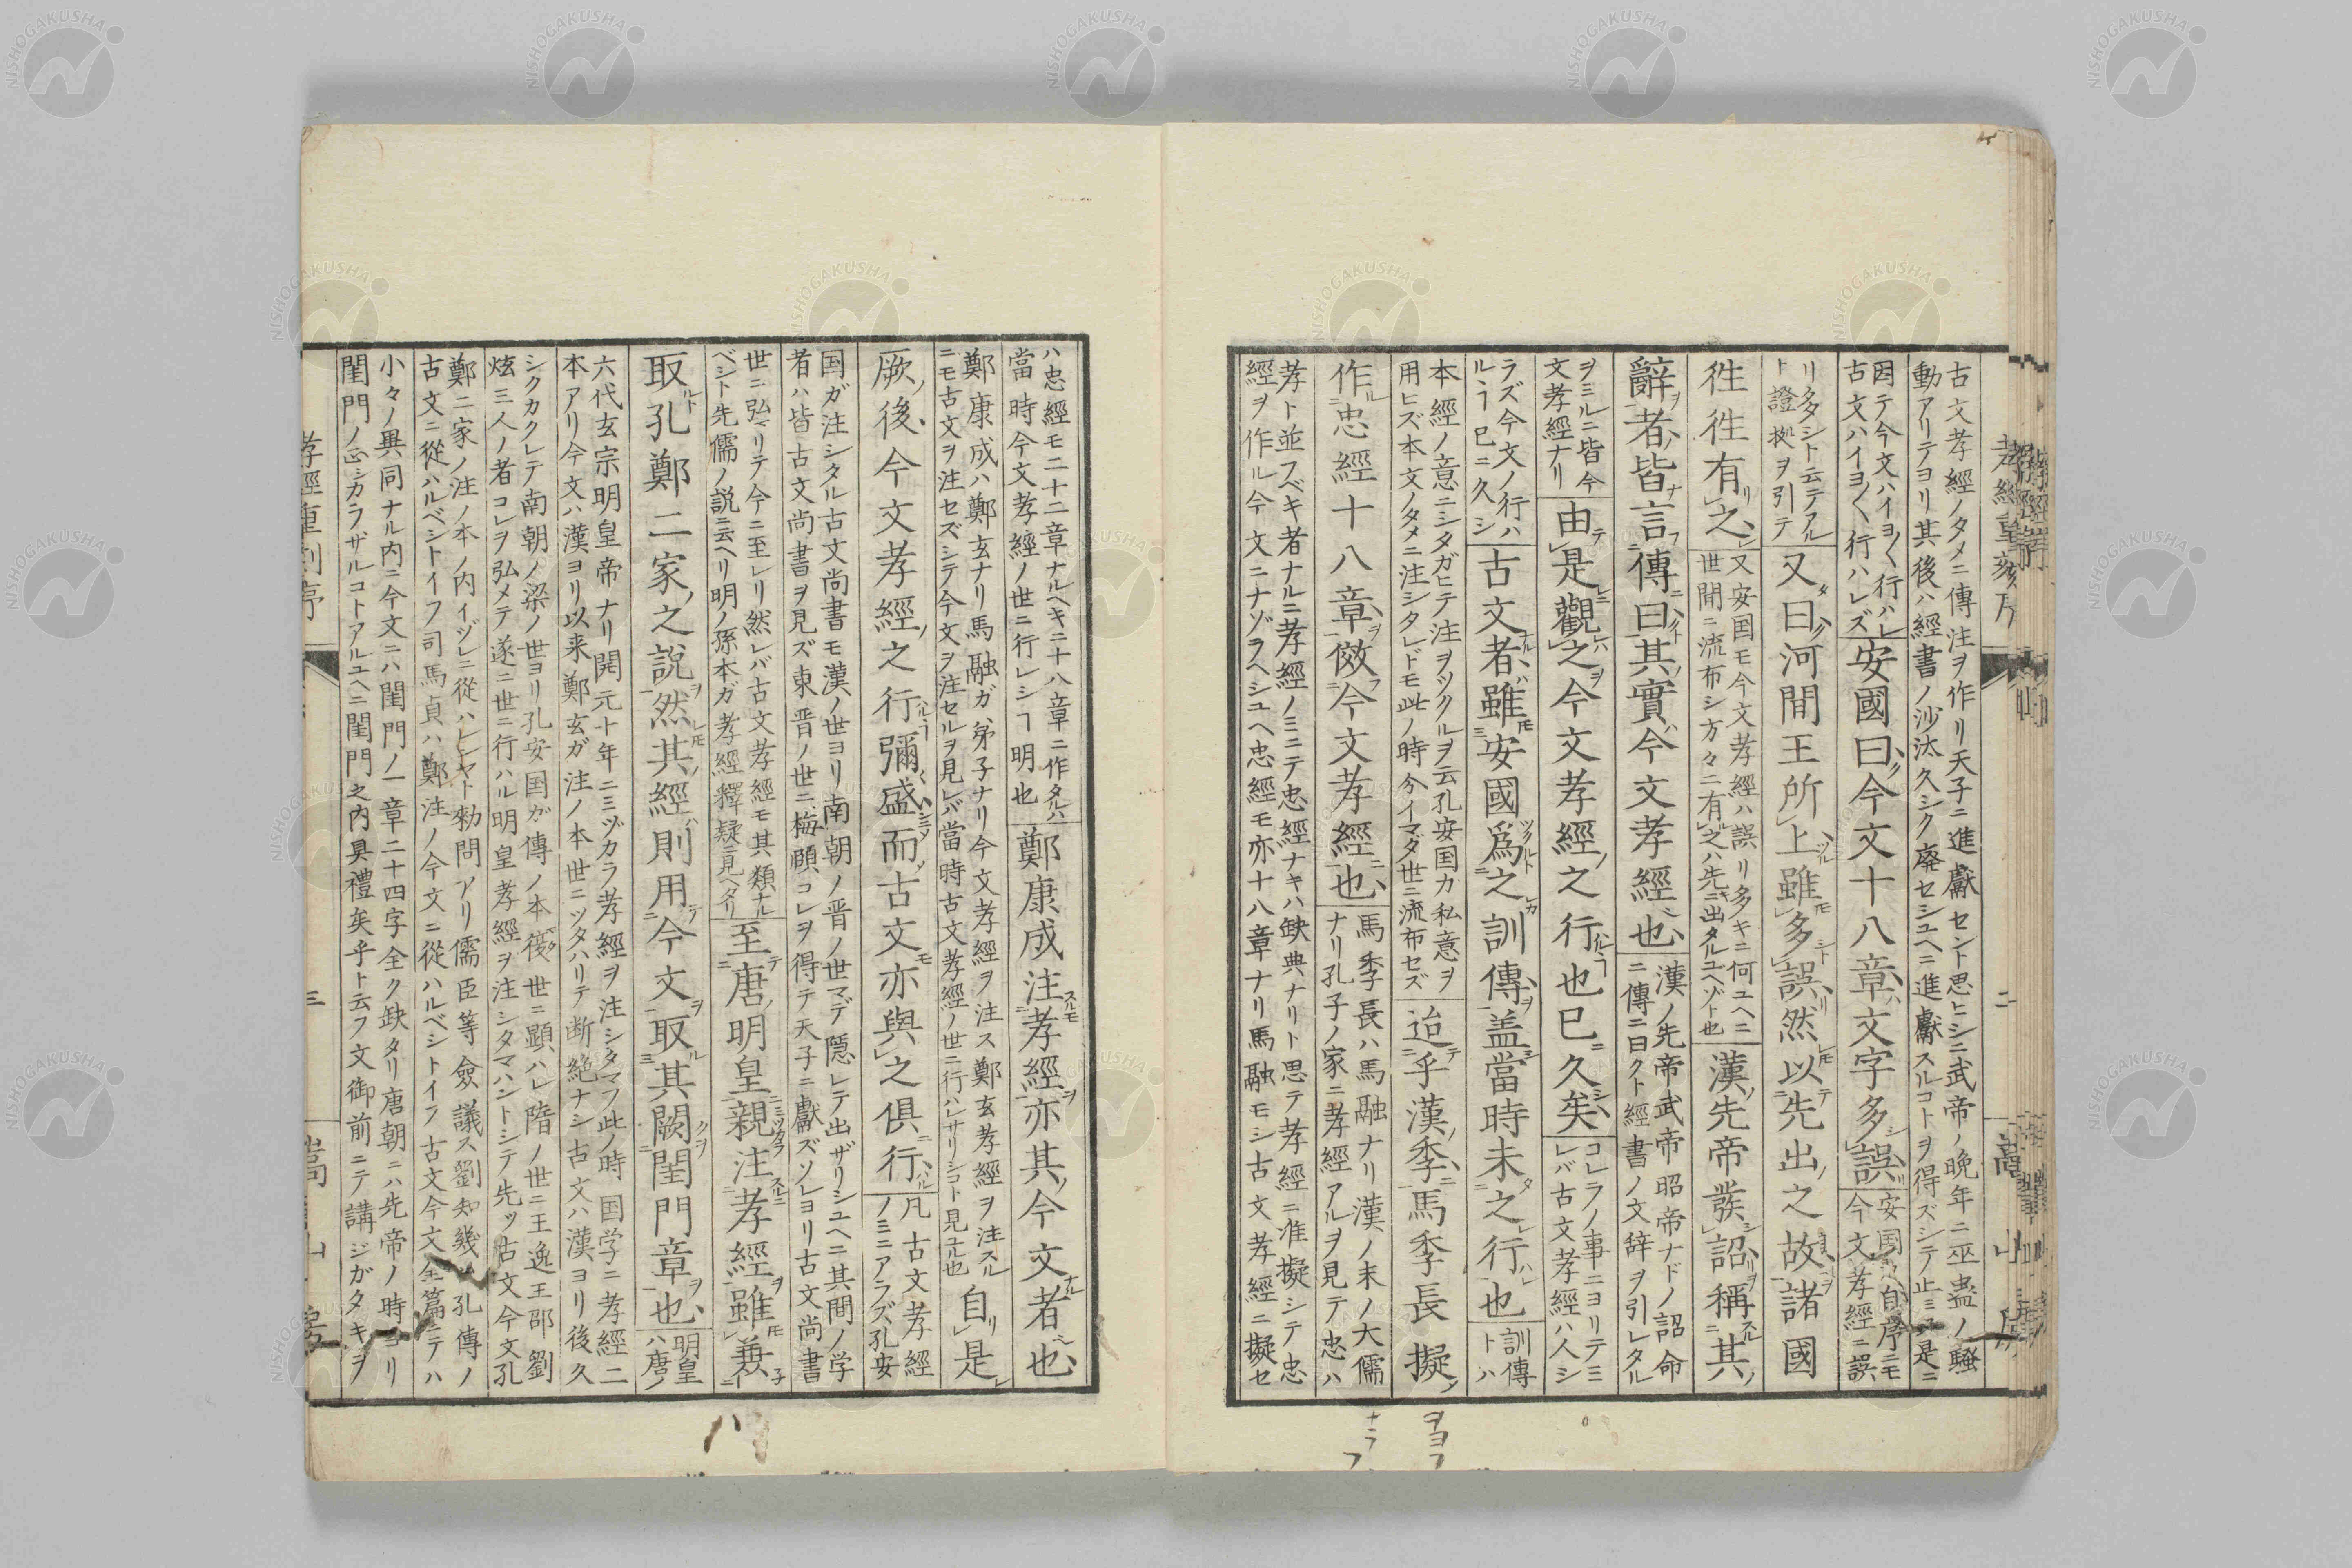 古文孝經ノタメニ傳注ヲ作リ天子ニ進獻セント思ヒシニ武帝ノ晩年ニ巫蠱ノ騷
動アリテヨリ其後ハ經書ノ沙汰久シク廢セシユヘニ進獻スルコトヲ得ズシテ止ミヌ是ニ
因テ今文ハイヨ〱行ハレ
古文ハイヨ〱行ハレズ
安國曰今文十八章文字多誤
安国 自序ニモ
今文孝經ニ誤
リ多シト云テアル
ト證拠ヲ引テ
又曰河間王所上雖多誤然以先出之故諸國
徃徃有之
又安国モ今文孝經ハ誤リ多キニ何ユヘニ
世間ニ流布シ方々ニ有之ハ先ニ出タルユヘゾト也
漢先帝發詔稱其
辭者皆言傳曰其實今文孝經也
漢ノ先帝武帝昭帝ナドノ詔命
ニ傳ニ曰クト經書ノ文辞ヲ引レタル
ヲミルニ皆今
文孝經ナリ
由是觀之今文孝經之行也已久矣
コレラノ事ニヨリテミ
レバ古文孝經ハ人シ
ラズ今文ノ行ハ
ルヽヿ已ニ久シ
古文者雖安國爲之訓傳盖當時未之行也
訓傳
トハ
本經ノ意ニシタガヒテ注ヲツクルヲ云孔安国カ私意ヲ
用ヒズ本文ノタメニ注シタレドモ此ノ時今イマダ世ニ流布セズ
迨乎漢季馬季長擬
作忠經十八章倣今文孝經也
馬季長ハ馬融ナリ漢ノ末ノ大儒
ナリ孔子ノ家ニ孝經アルヲ見テ忠ハ
孝ト並フベキ者ナルニ孝經ノミニテ忠經ナキハ缺典ナリト思テ孝經ニ准擬シテ忠
經ヲ作ル今文ニナゾラヘシユヘ忠經モ亦十八章ナリ馬融モシ古文孝經ニ擬セ
ハ忠經モ二十二章ナルヘキニ十八章ニ作タルハ
當時今文孝經ノ世ニ行レシヿ明也
鄭康成注孝經亦其今文者也
鄭康成ハ鄭玄ナリ馬融ガ弟子ナリ今文孝經ヲ注ス鄭玄孝經ヲ注スル
ニモ古文ヲ注セズシテ今文ヲ注セルヲ見レバ當時古文孝經ノ世ニ行ハレサリシコト見ユル也
自是
厥後今文孝經之行彌盛而古文亦與之俱行
凡古文孝經
ノミニアラズ孔安
国ガ注シタル古文尚書モ漢ノ世ヨリ南朝ノ晋ノ世マデ隠レテ出ザリシユヘニ其間ノ学
者ハ皆古文尚書ヲ見ズ東晋ノ世ニ梅頤コレヲ得テ天子ニ獻ズソレヨリ古文尚書
世ニ弘マリテ今ニ至レリ然レバ古文孝經モ其類ナル
ベシト先儒ノ説ニ云ヘリ明ノ孫本ガ孝經釋疑ニ見ヘタリ
至唐明皇親注孝經雖兼
取孔鄭二家之說然其經則用今文取其闕閨門章也
明皇
ハ唐ノ
六代玄宗明皇帝ナリ開元十年ニミヅカラ孝經ヲ注シタマフ此ノ時国学ニ孝經二
本アリ今文ハ漢ヨリ以来鄭玄ガ注ノ本世ニツタハリテ断絶ナシ古文ハ漢ヨリ後久
シクカクレテ南朝ノ梁ノ世ヨリ孔安国ガ傳ノ本復世ニ顕ハレ隋ノ世ニ王逸王邵劉
炫三人ノ者コレヲ弘メテ遂ニ世ニ行ハル明皇孝經ヲ注シタマハントシテ先ツ古文今文孔
鄭二家ノ注ノ本ノ内イヅレニ從ハレンヤト勅問アリ儒臣等僉議ス劉知幾ハ孔傳ノ
古文ニ從ハルベシトイフ司馬貞ハ鄭注ノ今文ニ從ハルベシトイフ古文今文全篇ニテハ
小々ノ異同ナル内ニ今文ニハ閨門ノ一章二十四字全ク缺タリ唐朝ニハ先帝ノ時ヨリ
閨門ノ正シカラザルコトアルユヘニ閨門之内具禮矣乎ト云フ文御前ニテ講ジガタキヲ
孝經重刻序
三